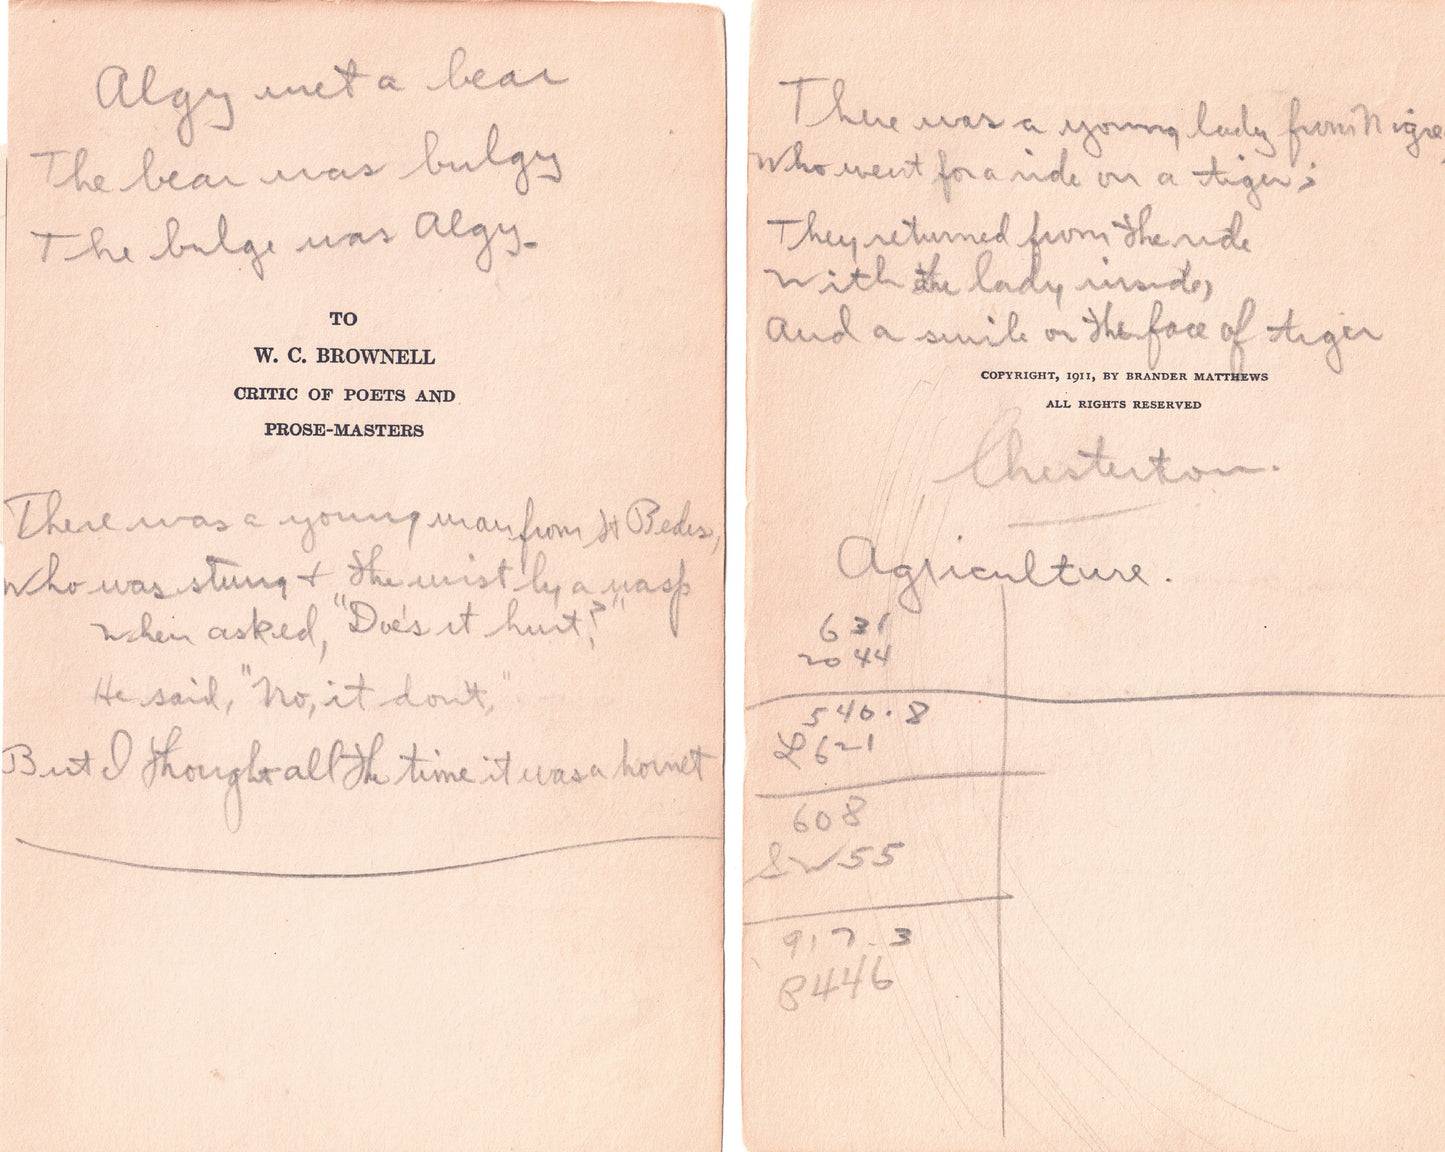 Algy met a bear
The bear was bulgy
The bulge was Algy.
TO
W. C. BROWNELL
CRITIC OF POETS AND
PROSE-MASTERS
There was a young man from St Bedes,
Who was stung + the wrist by a wasp
When asked, "Does it hurt?"
He said, "No, it don't,"
But I thought all the time it was a hornet
There was a young lady from Nigre,
Who went for a ride on a tiger;
They returned from the ride
With the lady inside,
And a smile on the face of tiger
COPYRIGHT, 1911, BY BRANDER MATTHEWS
ALL RIGHTS RESERVED
Chesterton.
Agriculture.
631
2044
540.8
L621
608
SW55
917.3
P446